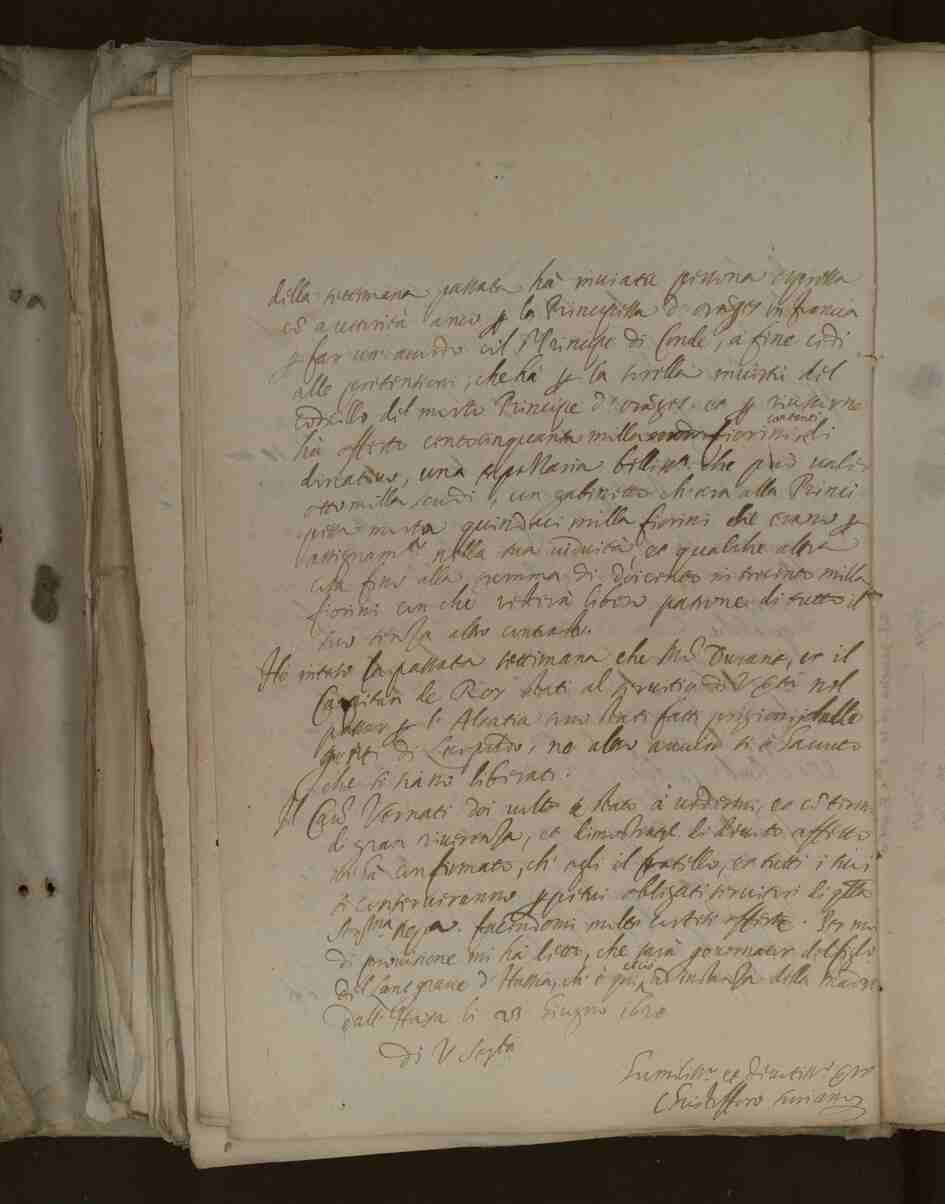 della settimana passata hà inviata persona espressa
cõ auttorità anco ꝑ la Principessa d'oranges in francia
ꝑ far un accordo col Principe di Condé, à fine cedi
alle pretensioni, che hà ꝑ la sorella in virtù del
codicillo del morto Principe d'oranges et ꝑ
hà offerto centocinquanta milla fiorini contenti, li
donativo, una tapezzaria bellissᵃ che può valer
ottomilla scudi, un gabinetto ch'era alla Princi
pessa morta quindeci milla fiorini che erano ꝑ
assignamᵗᵒ nella sua viduità et qualche altra
cosa fino alla summa di doicento in trecento milla
fiorini con che resterà libero patrone di tutto il
suo senza altro contrasto.
Hò inteso la passata settimana che Mʳ Durant, et il
Capitan le Roy stati al servitio di Vʳᵃ Stà nel
passar ꝑ l'Alsatia sono stati fatti prigioni dalla
gente di Leopoldo, ne altro ancora si è saputo
che si siano liberati.
Il Caʳ Vernati doi volte è stato à vedermi, et cõ termini
di gran riverenza, et dimostratⁿⁱ di devoto affetto
mi hà confirmato, ch'egli il fratello, et tutti i suoi
si conserveranno ꝑpetui obligati servitori di qᵗᵃ
Serᵐᵃ Repᵃ. facendomi molte cortesi offerte. Per
di provisione mi hà detto, che sarà governator del figlio
del Lantgrave d'Hassia, ch'è qui ad instanza della Madre
Dall'Haya li 23 Giugno 1620
Di V Serᵗà
Humilissᵒ et Devotissᵒ serʳᵉ
Christofforo Suriano